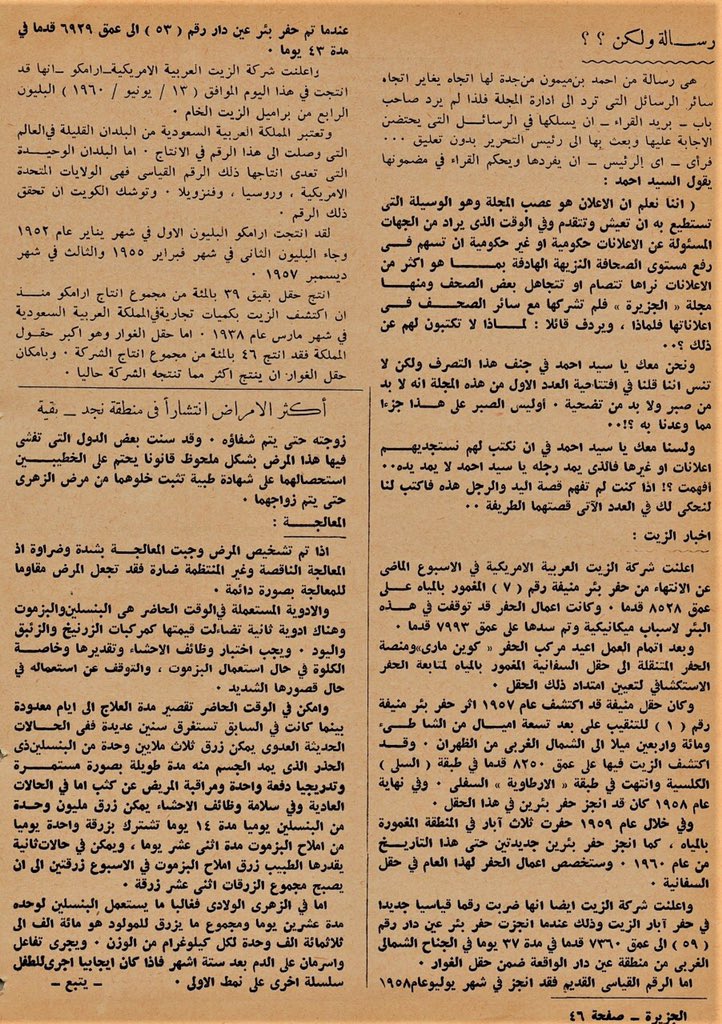 رســـالة ولكن ؟ ؟
هى رسالة من احمد بن ميمون من جدة لها اتجاه يغاير اتجاه
سائر الرسائل التى ترد الى ادارة المجلة فلذا لم يرد صاحب
باب ـ بريد القراء ـ ان يسلكها فى الرسائــل التى يحتضن
الاجابة عليها وبعث بها الى رئيس التحرير بدون تعليق ٠٠٠
فرأى ـ اى الرئيس ـ ان يفردها ويحكم القراء فى مضمونها
يقول السيد احمد :
( اننا نعلم ان الاعلان هو عصب المجلة وهو الوسيلة التى
تستطيع به ان تعيش وتتقدم وفى الوقت الذى يراد من الجهات
المسئولة عن الاعلانات حكومية او غير حكومية ان تسهم فــى
رفع مستوى الصحافة النزيهة الهادفة بمــــا هو اكثر من
الاعلانات نراها تتصام او تتجاهل بعض الصحف ومنهــا
مجلة « الجزيرة » فلم تشركها مع سائر الصحــف فــى
اعلاناتها فلماذا ، ويردف قائلا : لمــاذا لا تكتبون لهم عن
ذلك ؟٠٠
ونحن معك يا سيد احمد في جنف هذا التصرف ولكن لا
تنس اننا قلنا في افتتاحية العدد الاول من هذه المجلة انه لا بد
من صبر ولا بد من تضحية ٠ أوليس الصبر على هــذا جزءا
مما وعدنا به ؟!٠٠
ولسنا معك يا سيد احمد في ان نكتب لهم نستجديهــم
اعلانات او غيرها فالذى يمد رجله يا سيد احمد لا يمد يده٠٠
أفهمت ؟! اذا كنت لم تفهم قصة اليد والرجل هذه فاكتب لنا
لنحكى لك في العدد الآتى قصتهما الطريفة ٠٠
اخبار الزيت :
اعلنت شركة الزيت العربية الامريكية في الاسبوع الماضى
عن الانتهاء من حفر بئر منيفة رقم ( ٧ ) المغمور بالمياه علــى
عمق ٨٥٢٨ قدما ٠ وكانت اعمال الحفر قد توقفت في هــذه
البئر لاسباب ميكانيكية وتم سدها على عمق ٧٩٩٣ قدما ٠
وبعد اتمام العمل اعيد مركب الحفر « كوين مارى»ومنصة
الحفر المتنقلة الى حقل السفانية المغمور بالمياه لمتابعة الحفر
الاستكشافي لتعيين امتداد ذلك الحقل ٠
وكان حقل منيفة قد اكتشف عام ١٩٥٧ اثر حفر بئر منيفة
رقم ( ١ ) للتنقيب على بعد تسعة اميــال من الشاطىء
ومائة واربعين ميلا الى الشمال الغربى من الظهران ٠ وقــد
اكتشف الزيت فيها على عمق ٨٢٥٠ قدما في طبقة ( السلى )
الكلسية وانتهت في طبقة « الارطاوية » السفلى ٠ وفي نهاية
عام ١٩٥٨ كان قد انجز حفر بئرين في هذا الحقل ٠
وفي خلال عام ١٩٥٩ حفرت ثلاث آبار في المنطقة المغمورة
بالمياه ، كما انجز حفر بئرين جديدتين حتى هذا التاريــخ
من عام ١٩٦٠ ٠ وستخصص اعمال الحفر لهذا العام في حقل
السفانية ٠
واعلنت شركة الزيت ايضا انها ضربت رقما قياسيا جديدا
في حفر آبار الزيت وذلك عندما انجزت حفر بئر عين دار رقم
( ٥٩ ) الى عمق ٧٣٦٠ قدما في مدة ٣٧ يوما في الجناح الشمالى
الغربى من منطقة عين دار الواقعة ضمن حقل الغوار ٠
اما الرقم القياسى القديم فقد انجز في شهر يوليوعام١٩٥٨
عندما تم حفر بئر عين دار رقم ( ٥٣ ) الى عمق ٦٩٢٩ قدما في
مدة ٤٣ يوما ٠
واعلنت شركة الزيت العربية الامريكيةـ ارامكو ـ انها قد
انتجت في هذا اليوم الموافق ( ١٣ / يونيو / ١٩٦٠ ) البليون
الرابع من براميل الزيت الخام ٠
وتعتبر المملكة العربية السعودية من البلدان القليلة فىالعالم
التى وصلت الى هذا الرقم فى الانتاج ٠ اما البلدان الوحيــدة
التى تعدى انتاجها ذلك الرقم القياسى فهى الولايات المتحدة
الامريكية ، وروسيا ، وفنزويلا ٠ وتوشك الكويت ان تحقق
ذلك الرقم ٠
لقد انتجت ارامكو البليون الاول فى شهر يناير عام ١٩٥٢
وجاء البليون الثانى فى شهر فبراير ١٩٥٥ والثالث فى شهر
ديسمبر ١٩٥٧ ٠
انتج حقل بقيق ٣٩ بالمئة من مجموع انتاج ارامكو منــذ
ان اكتشف الزيت بكميات تجارية فىالمملكة العربية السعودية
فى شهر مارس عام ١٩٣٨ ٠ اما حقل الغوار وهو اكبر حقــول
المملكة فقد انتج ٤٦ بالمئة من مجموع انتاج الشركة ٠ وبامكان
حقل الغوار ان ينتج اكثر مما تنتجه الشركة حاليا ٠
أكثر الامراض انتشاراً فى منطقة نجد ـ بقية
زوجته حتى يتم شفاؤه ٠ وقد سنت بعض الدول التى تفشى
فيها هذا المرض بشكل ملحوظ قانونا يحتم على الخطيبــين
استحصالهما على شهادة طبية تثبت خلوهما من مرض الزهرى
حتى يتم زواجهما ٠
المعالجــــة :
اذا تم تشخيص المرض وجبت المعالجــة بشدة وضراوة اذ
المعالجة الناقصة وغير المنتظمة ضارة فقد تجعل المرض مقاوما
للمعالجة بصورة دائمة ٠
والادوية المستعملة فىالوقت الحاضر هى البنسلين والبزموت
وهناك ادوية ثانية تضاءلت قيمتها كمركبات الزرنيخ والزئبق
واليود ٠ ويجب اختبار وظائف الاحشاء وتقديرها وخاصــة
الكلوة في حال استعمال البزموت ، والتوقف عن استعماله في
حال قصورها الشديد ٠
وامكن في الوقت الحاضر تقصير مدة العلاج الى ايام معدودة
بينما كانت في السابق تستغرق سنين عديدة ففى الحــالات
الحديثة العدوى يمكن زرق ثلاث ملايين وحدة من البنسلين ذى
الحذر الذى يمد الجسم منه مدة طويلة بصورة مستمــرة
وتدريجيا دفعة واحدة ومراقبة المريض عن كثب اما في الحالات
العادية وفي سلامة وظائف الاحشاء يمكن زرق مليون وحــدة
من البنسلين يوميا مدة ١٤ يوما تشترك بزرقة واحدة يوميا
من املاح البزموت مدة اثنى عشر يوما ، ويمكن في حالات ثانية
يقدرها الطبيب زرق املاح البزموت في الاسبوع زرقتين الى ان
يصبح مجموع الزرقات اثنى عشر زرقة ٠
اما في الزهرى الولادى فغالبا ما يستعمل البنسلين لوحده
مدة عشرين يوما ومجموع ما يزرق للمولود هو مائة الف الى
ثلاثمائة الف وحدة لكل كيلوغرام من الوزن ٠ ويجرى تفاعل
واسرمان على الدم بعد ستة اشهر فاذا كان ايجابيا اجرى للطفل
سلسلة اخرى على نمط الاولى ٠ ـ يتبع ـ
الجزيرة ـ صفحة ٤٦